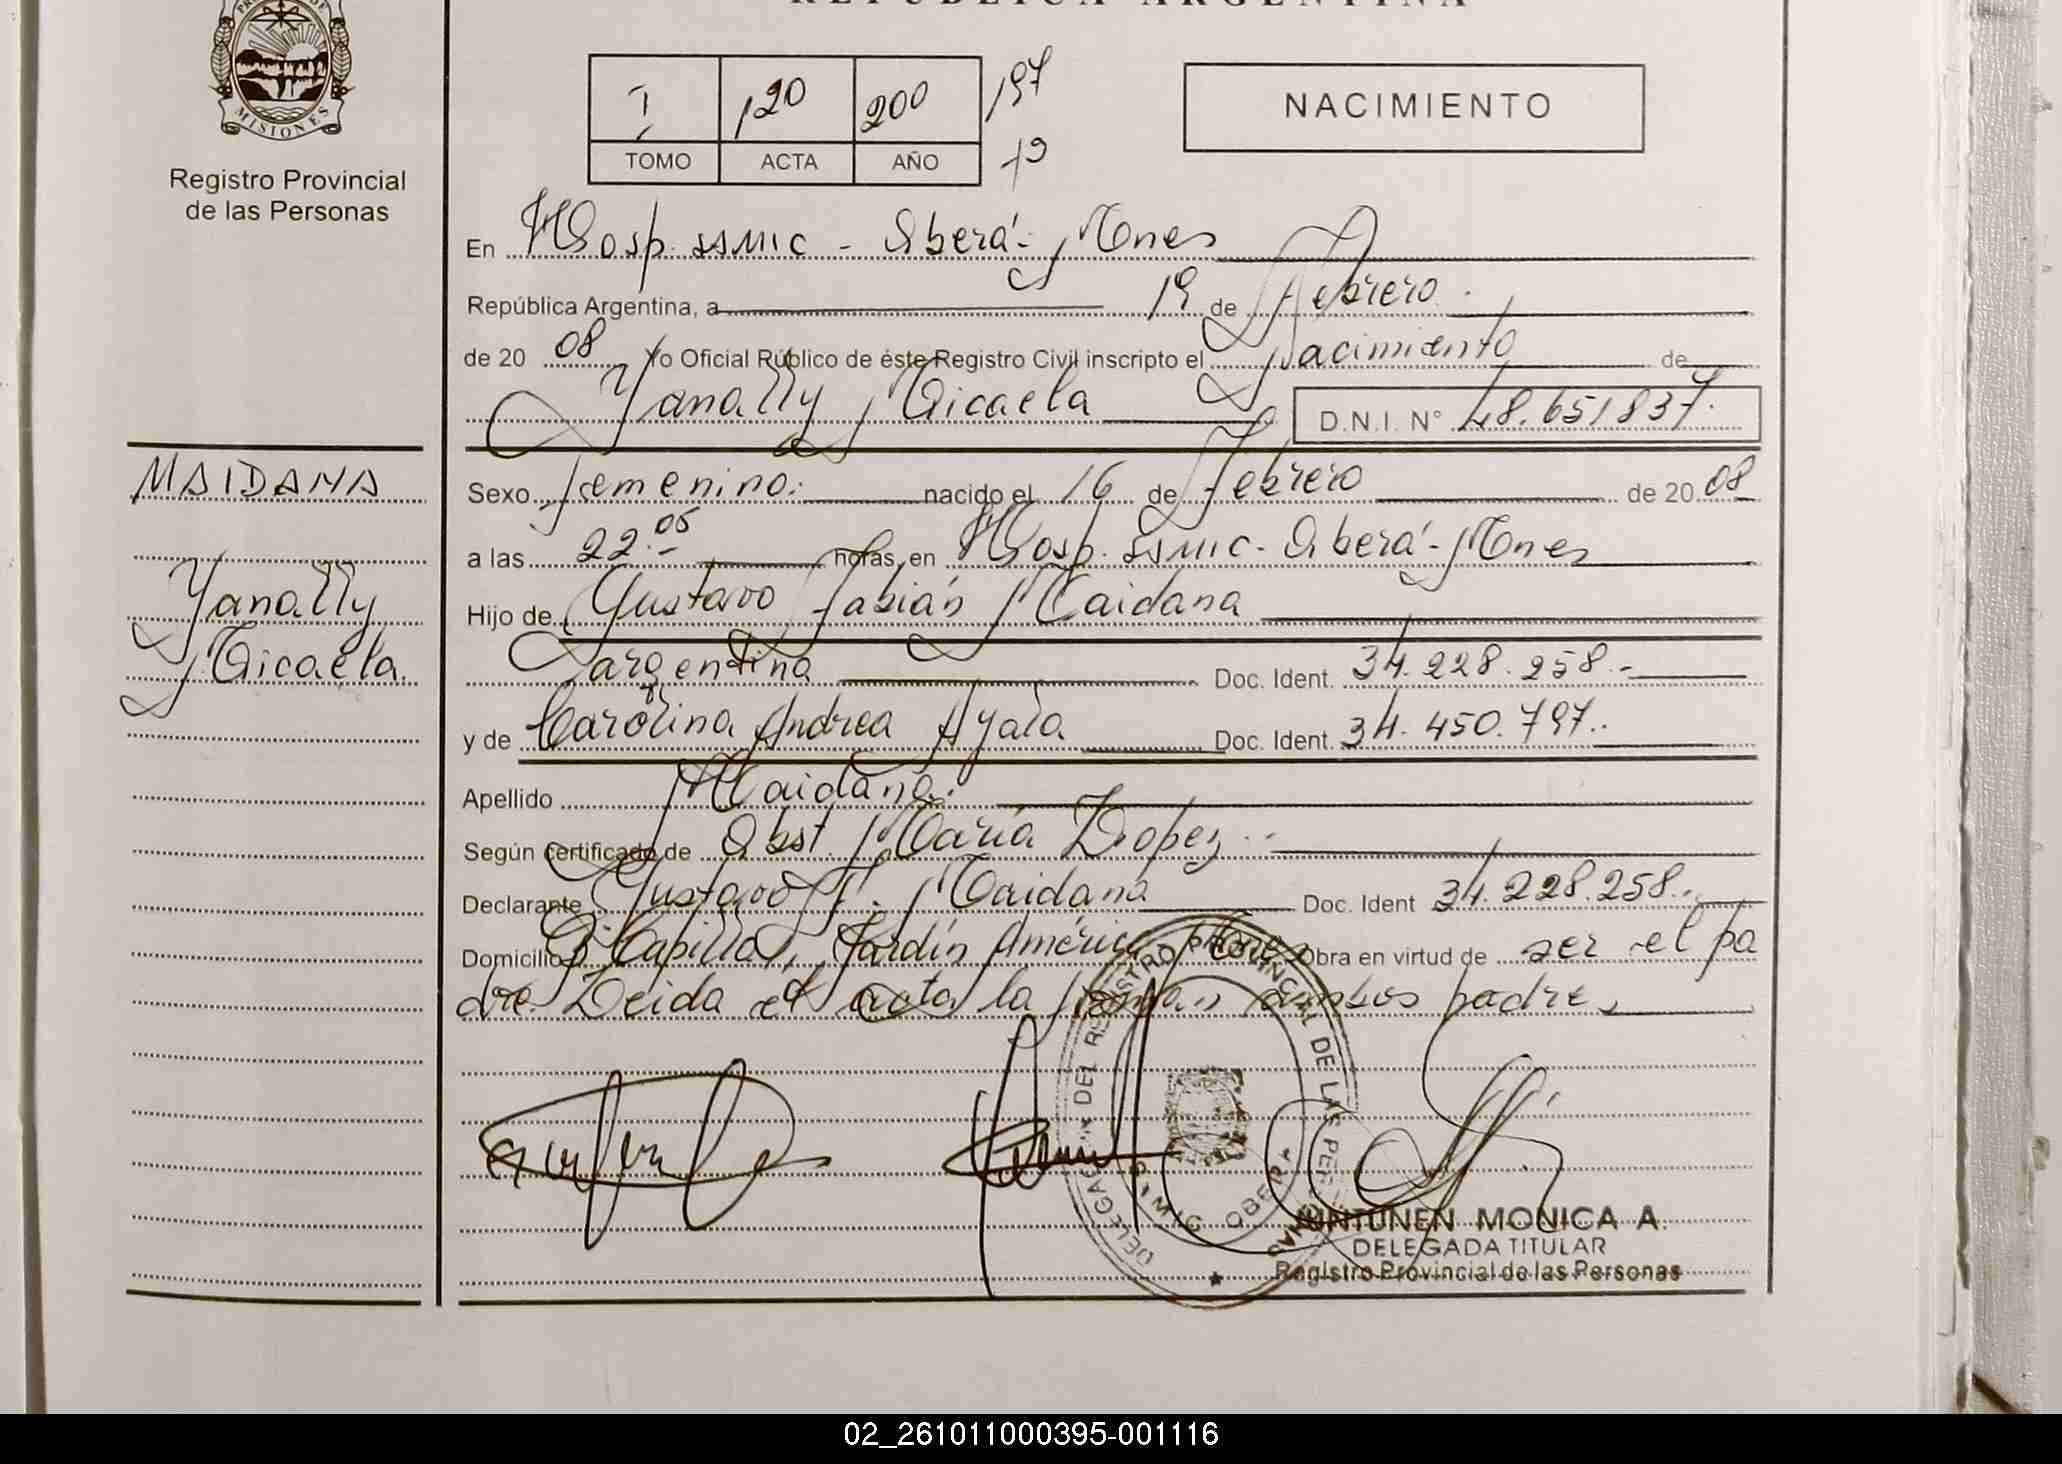 REPÚBLICA ARGENTINA
MISIONES
Registro Provincial
de las Personas
I 120 200
TOMO ACTA AÑO
197
NACIMIENTO
En Hosp. SSMIC - Oberá - Mnes
República Argentina, a 19 de Febrero
de 20 08 Yo Oficial Público de éste Registro Civil inscripto el Nacimiento de
Yanally Micaela D.N.I. N° 48.651837.
MAIDANA
Yanally
Micaela
Sexo femenino. nacido el 16 de Febrero de 20 08
a las 22.05 horas, en Hosp. SSMIC - Oberá - Mnes
Hijo de Gustavo Fabián Maidana
argentina Doc. Ident. 34.228.258.-
y de Carolina Andrea Ayala Doc. Ident. 34.450.797.
Apellido Maidana.
Según certificado de Obst. María Lopez
Declarante Gustavo F. Maidana Doc. Ident 34.228.258.
Domicilio Bº Capilla, Jardín América, Mnes Obra en virtud de ser el pa
dre. Leida el acta la firman ambos padre
DELEGACIÓN DEL REGISTRO PROVINCIAL DE LAS PERSONAS
OBERA
JUNTUNEN MONICA A
DELEGADA TITULAR
Registro Provincial de las Personas
02_261011000395-001116